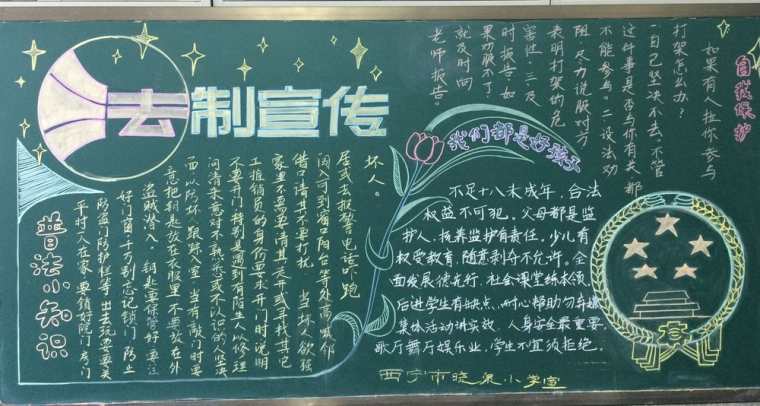 法制宣传
普法小知识
平时人在家，要锁好院门房门
防盗门防护栏等，出去玩要要关
好门窗千万别忘记锁门，防止
盗贼潜入。钥匙要保管好，要注
意把钥匙放在衣服里，不要放在外
面，以防坏人跟踪入室。当有敲门时要
问清来意，对不熟悉或不认识的人坚决
不要开门，特别是遇到有陌生人以修理
工推销员的身份要求开门时，说明
家里不需要，请其走开或寻找其它
借口请其不要打扰。当坏人欲强
闯入可到窗口阳台等处高喊邻
居或去报警电话吓跑
坏人。
自我保护
如果有人拉你参与
打架怎么办？
一自己坚决不去，不管
这件事是否与你有关都
不能参与。二设法劝
阻，尽力说服对方
表明打架的危
害性。三、及
时报告，如
果劝服不了，
就及时向
老师报告。
我们都是好孩子
不足十八未成年，合法
权益不可犯。父母都是监
护人，抚养监护有责任。少儿有
权受教育，随意剥夺不允许。全
面发展德先行，社会课堂练本领。
后进学生有缺点，耐心帮助勿弃嫌
集体活动讲实效，人身安全最重要，
歌厅舞厅娱乐业，学生不宜须拒绝。
西宁市晓泉小学宣